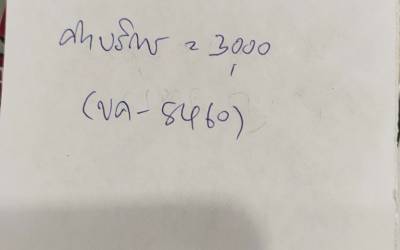 ค่าบริการ = 3,000
(ขค-8460)